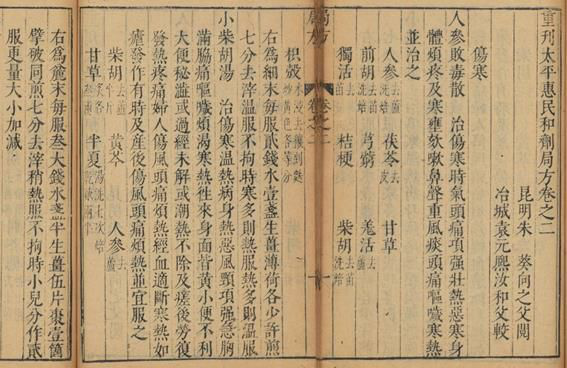 重刊太平惠民和劑局方卷之二
昆明朱 葵向之父閱
冶城袁元熙汝和父較
傷寒
人參敗毒散 治傷寒時氣頭痛項强壯熱惡寒身
體煩疼及寒壅欬嗽鼻聲重風痰頭痛嘔噦寒熱
並治之
人參去蘆洗焙 茯苓去皮 甘草
前胡去苗洗焙 芎藭 羗活去苗
獨活去苗 桔梗 柴胡去苗洗焙
局方 卷之二
枳殼
右為細末每服貳錢水壹盞生薑薄荷各少許煎
七分去滓溫服不拘時寒多則熱服熱多則溫服
小柴胡湯 治傷寒溫熱病身熱惡風頸項强急胸
滿脇痛嘔噦煩渴寒熱徃來身面皆黃小便不利
大便秘澁或過經未解或潮熱不除及瘥後勞復
發熱疼痛婦人傷風頭痛煩熱經血適斷寒熱如
瘧發作有時及産後傷風頭痛煩熱並宜服之
柴胡去蘆半斤 黃芩 人參去蘆
甘草 半夏
右為麄末每服叁大錢水盞半生薑伍片棗壹箇
擘破同煎七分去滓稍熱服不拘時小兒分作貳
服更量大小加减